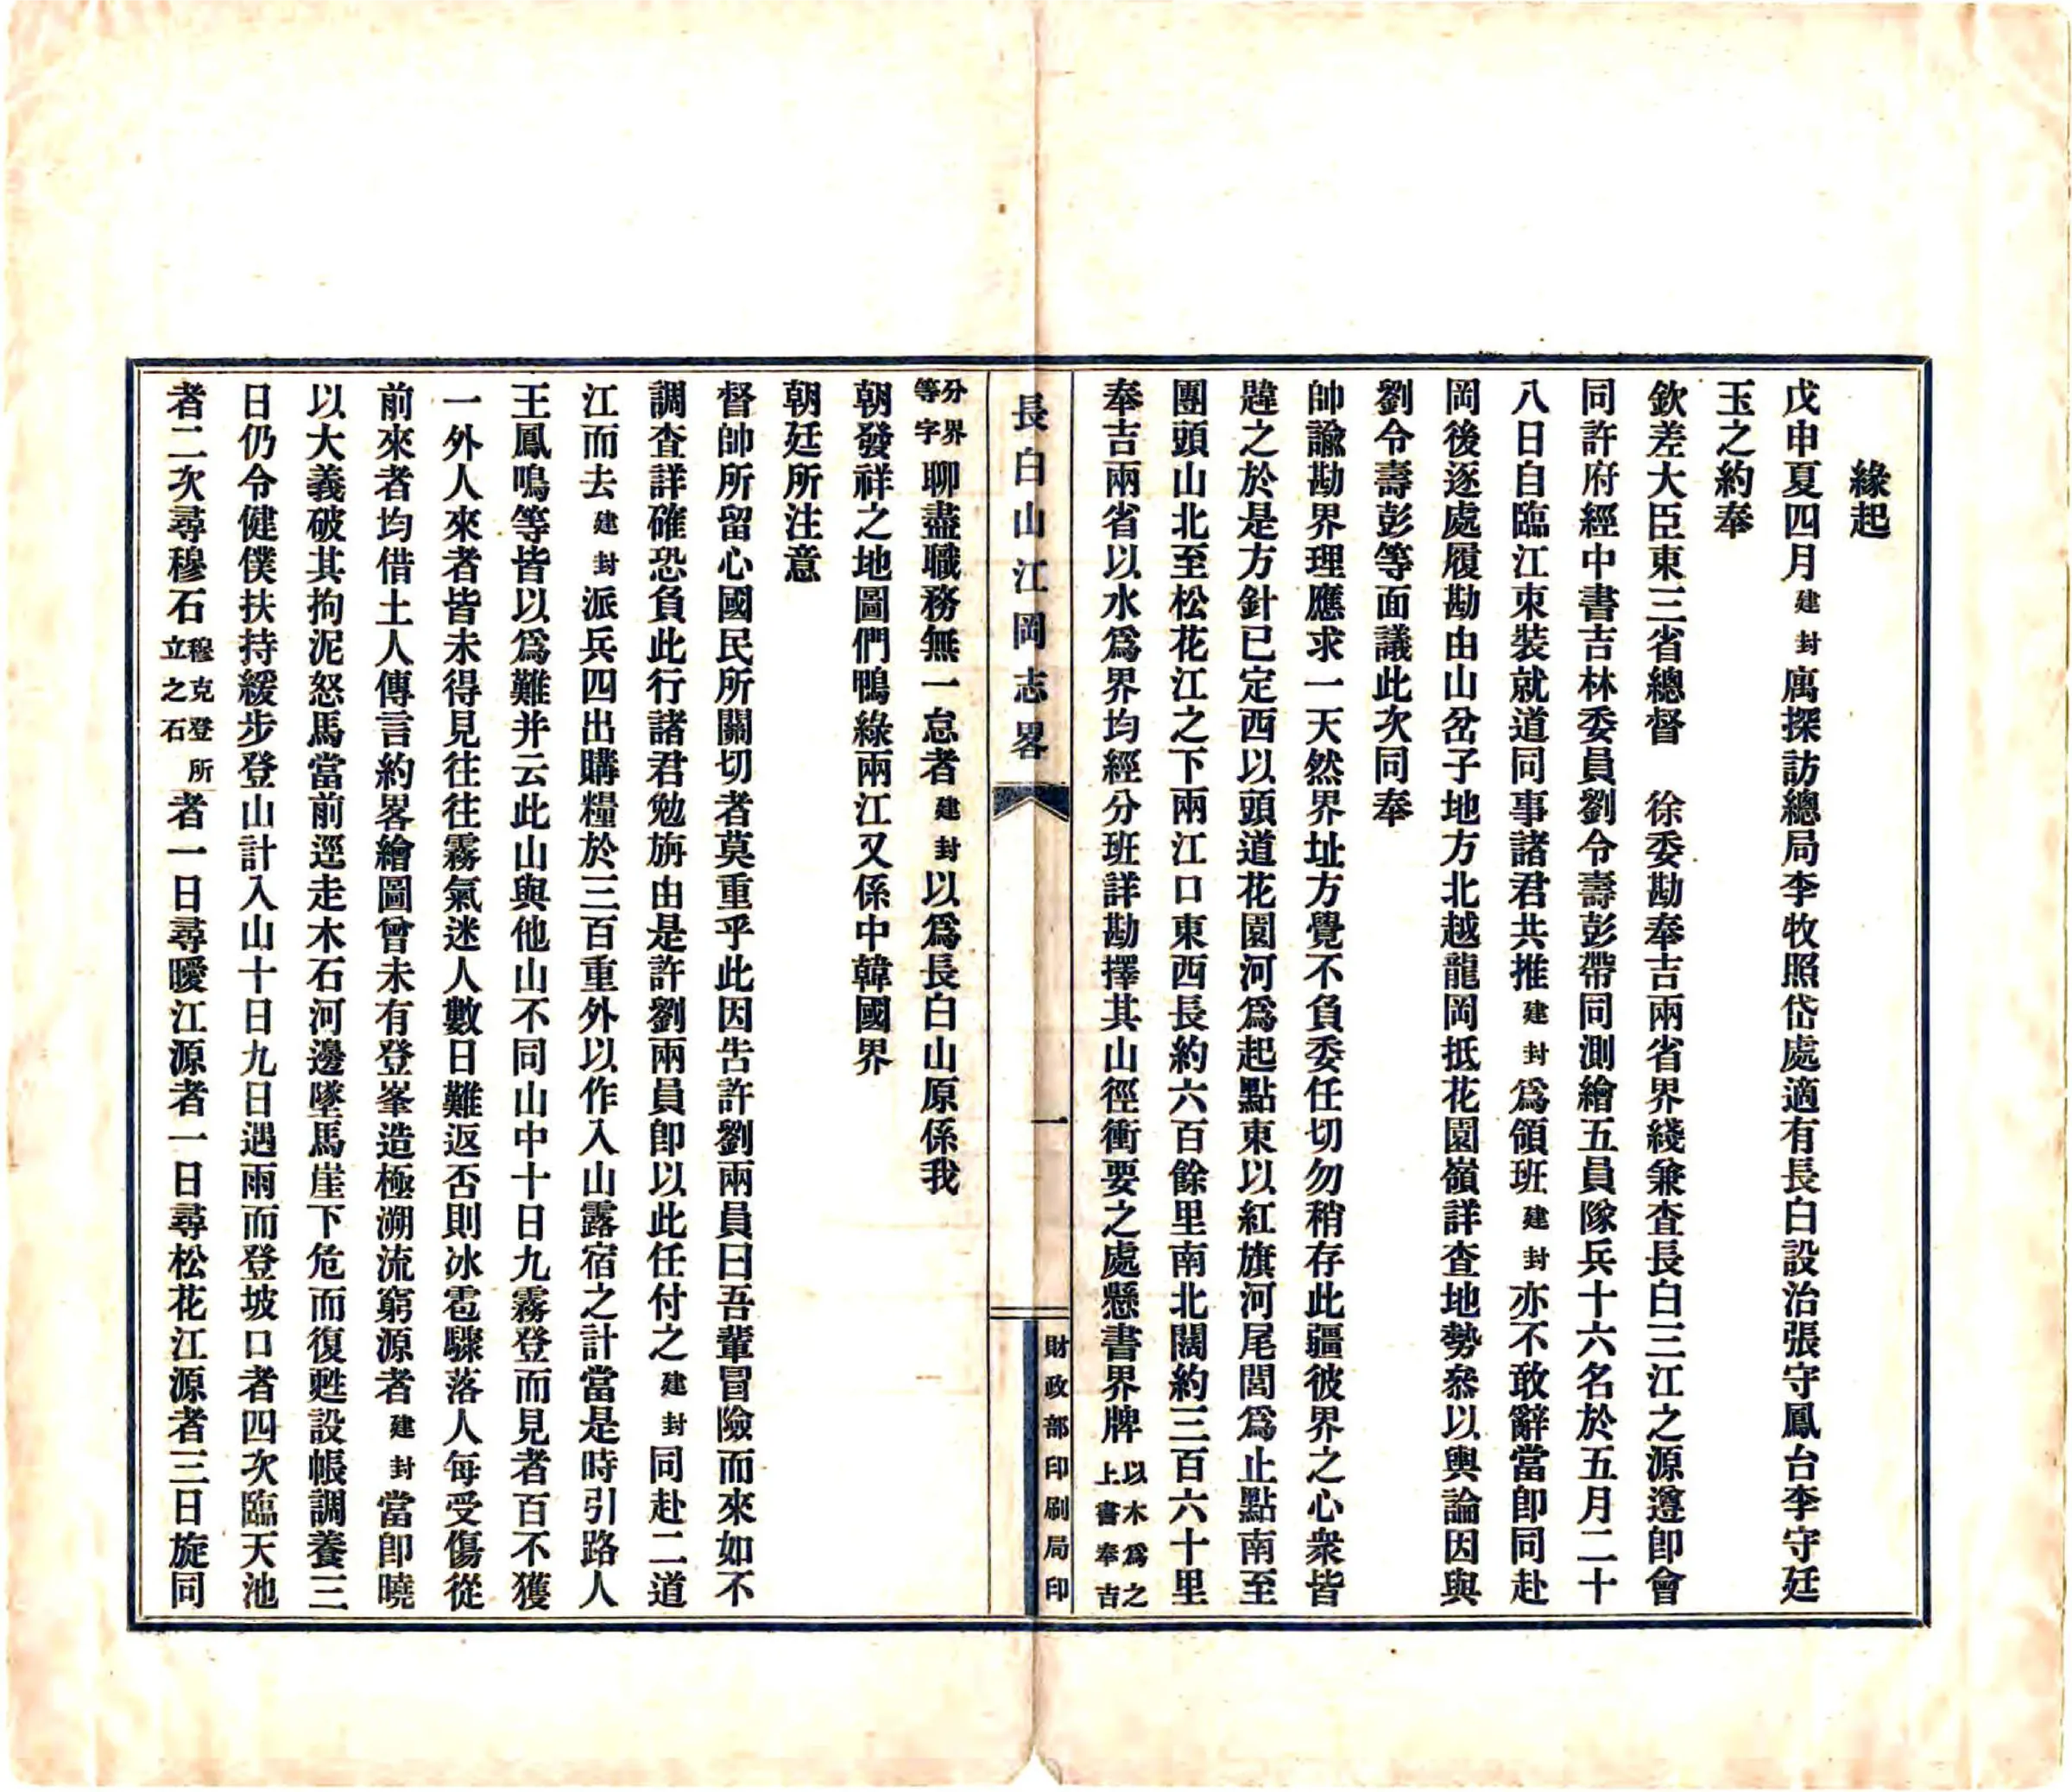 緣起
戊申夏四月建封寓探訪總局李牧照岱處適有長白設治張守鳳台李守廷
玉之約奉
欽差大臣東三省總督　徐委勘奉吉兩省界綫兼查長白三江之源遵卽會
同許府經中書吉林委員劉令壽彭帶同測繪五員隊兵十六名於五月二十
八日自臨江束裝就道同事諸君共推建封爲領班建封亦不敢辭當卽同赴
岡後逐處履勘由山岔子地方北越龍岡抵花園嶺詳查地勢叅以輿論因與
劉令壽彭等面議此次同奉
帥諭勘界理應求一天然界址方覺不負委任切勿稍存此疆彼界之心衆皆
韙之於是方針已定西以頭道花園河爲起點東以紅旗河尾閭爲止點南至
團頭山北至松花江之下兩江口東西長約六百餘里南北闊約三百六十里
奉吉兩省以水爲界均經分班詳勘擇其山徑衝要之處懸書界牌以木爲之上書奉吉
長白山江岡志畧
一
財政部印刷局印
分界等字聊盡職務無一怠者建封以爲長白山原係我
朝發祥之地圖們鴨綠兩江又係中韓國界
朝廷所注意
督帥所留心國民所關切者莫重乎此因告許劉兩員曰吾輩冒險而來如不
調查詳確恐負此行諸君勉旃由是許劉兩員卽以此任付之建封同赴二道
江而去建封派兵四出購糧於三百重外以作入山露宿之計當是時引路人
王鳳鳴等皆以爲難并云此山與他山不同山中十日九霧登而見者百不獲
一外人來者皆未得見往往霧氣迷人數日難返否則冰雹驟落人每受傷從
前來者均借土人傳言約畧繪圖曾未有登峯造極溯流窮源者建封當卽曉
以大義破其拘泥怒馬當前逕走木石河邊墜馬崖下危而復甦設帳調養三
日仍令健僕扶持緩步登山計入山十日九日遇雨而登坡口者四次臨天池
者二次尋穆石穆克登所立之石者一日尋曖江源者一日尋松花江源者三日旋同